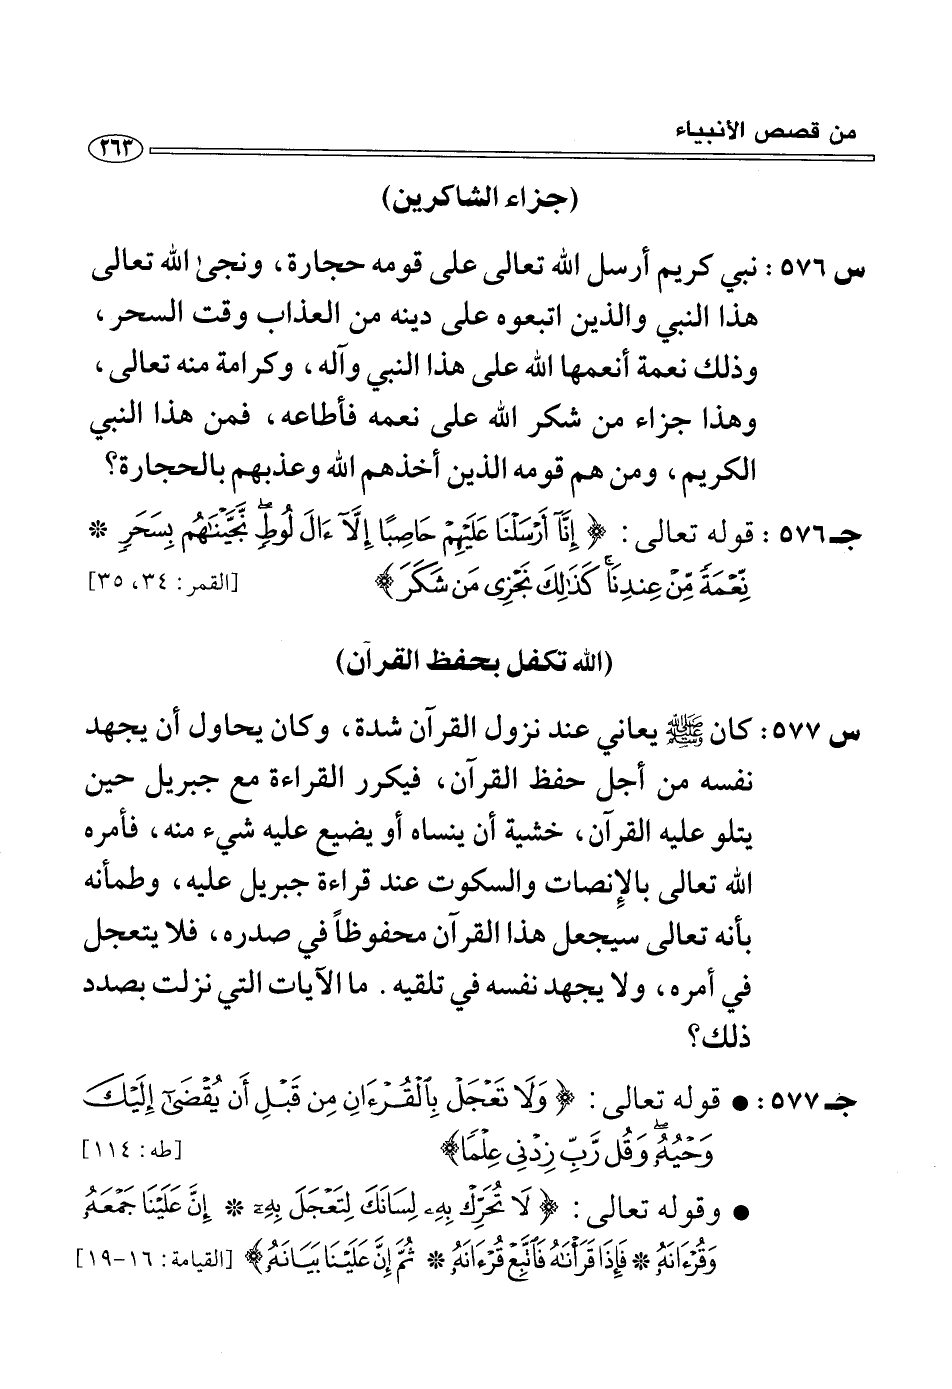 من قصص الأنبياء
٢٦٣
(جزاء الشاكرين)
س ٥٧٦ : نبي كريم أرسل الله تعالى على قومه حجارة، ونجىٰ الله تعالى
هذا النبي والذين اتبعوه على دينه من العذاب وقت السحر،
وذلك نعمة أنعمها الله على هذا النبي وآله، وكرامة منه تعالى،
وهذا جزاء من شكر الله على نعمه فأطاعه، فمن هذا النبي
الكريم، ومن هم قومه الذين أخذهم الله وعذبهم بالحجارة؟
جـ ٥٧٦ : قوله تعالى : ﴿ إِنَّآ أَرْسَلْنَا عَلَيْهِمْ حَاصِبًا إِلَّآ ءَالَ لُوطٍۖ نَّجَّيْنَٰهُم بِسَحَرٍ *
نِّعْمَةً مِّنْ عِندِنَاۚ كَذَٰلِكَ نَجْزِى مَن شَكَرَ ﴾ [القمر : ٣٤، ٣٥]
(الله تكفل بحفظ القرآن)
س ٥٧٧: كان ﷺ يعاني عند نزول القرآن شدة، وكان يحاول أن يجهد
نفسه من أجل حفظ القرآن، فيكرر القراءة مع جبريل حين
يتلو عليه القرآن، خشية أن ينساه أو يضيع عليه شيء منه، فأمره
الله تعالى بالإنصات والسكوت عند قراءة جبريل عليه، وطمأنه
بأنه تعالى سيجعل هذا القرآن محفوظاً في صدره، فلا يتعجل
في أمره، ولا يجهد نفسه في تلقيه. ما الآيات التي نزلت بصدد
ذلك؟
جـ ٥٧٧: ● قوله تعالى : ﴿ وَلَا تَعْجَلْ بِٱلْقُرْءَانِ مِن قَبْلِ أَن يُقْضَىٰٓ إِلَيْكَ
وَحْيُهُۥۖ وَقُل رَّبِّ زِدْنِى عِلْمًا ﴾ [طه: ١١٤]
● وقوله تعالى : ﴿ لَا تُحَرِّكْ بِهِۦ لِسَانَكَ لِتَعْجَلَ بِهِۦٓ * إِنَّ عَلَيْنَا جَمْعَهُۥ
وَقُرْءَانَهُۥ * فَإِذَا قَرَأْنَٰهُ فَٱتَّبِعْ قُرْءَانَهُۥ * ثُمَّ إِنَّ عَلَيْنَا بَيَانَهُۥ ﴾ [القيامة: ١٦-١٩]